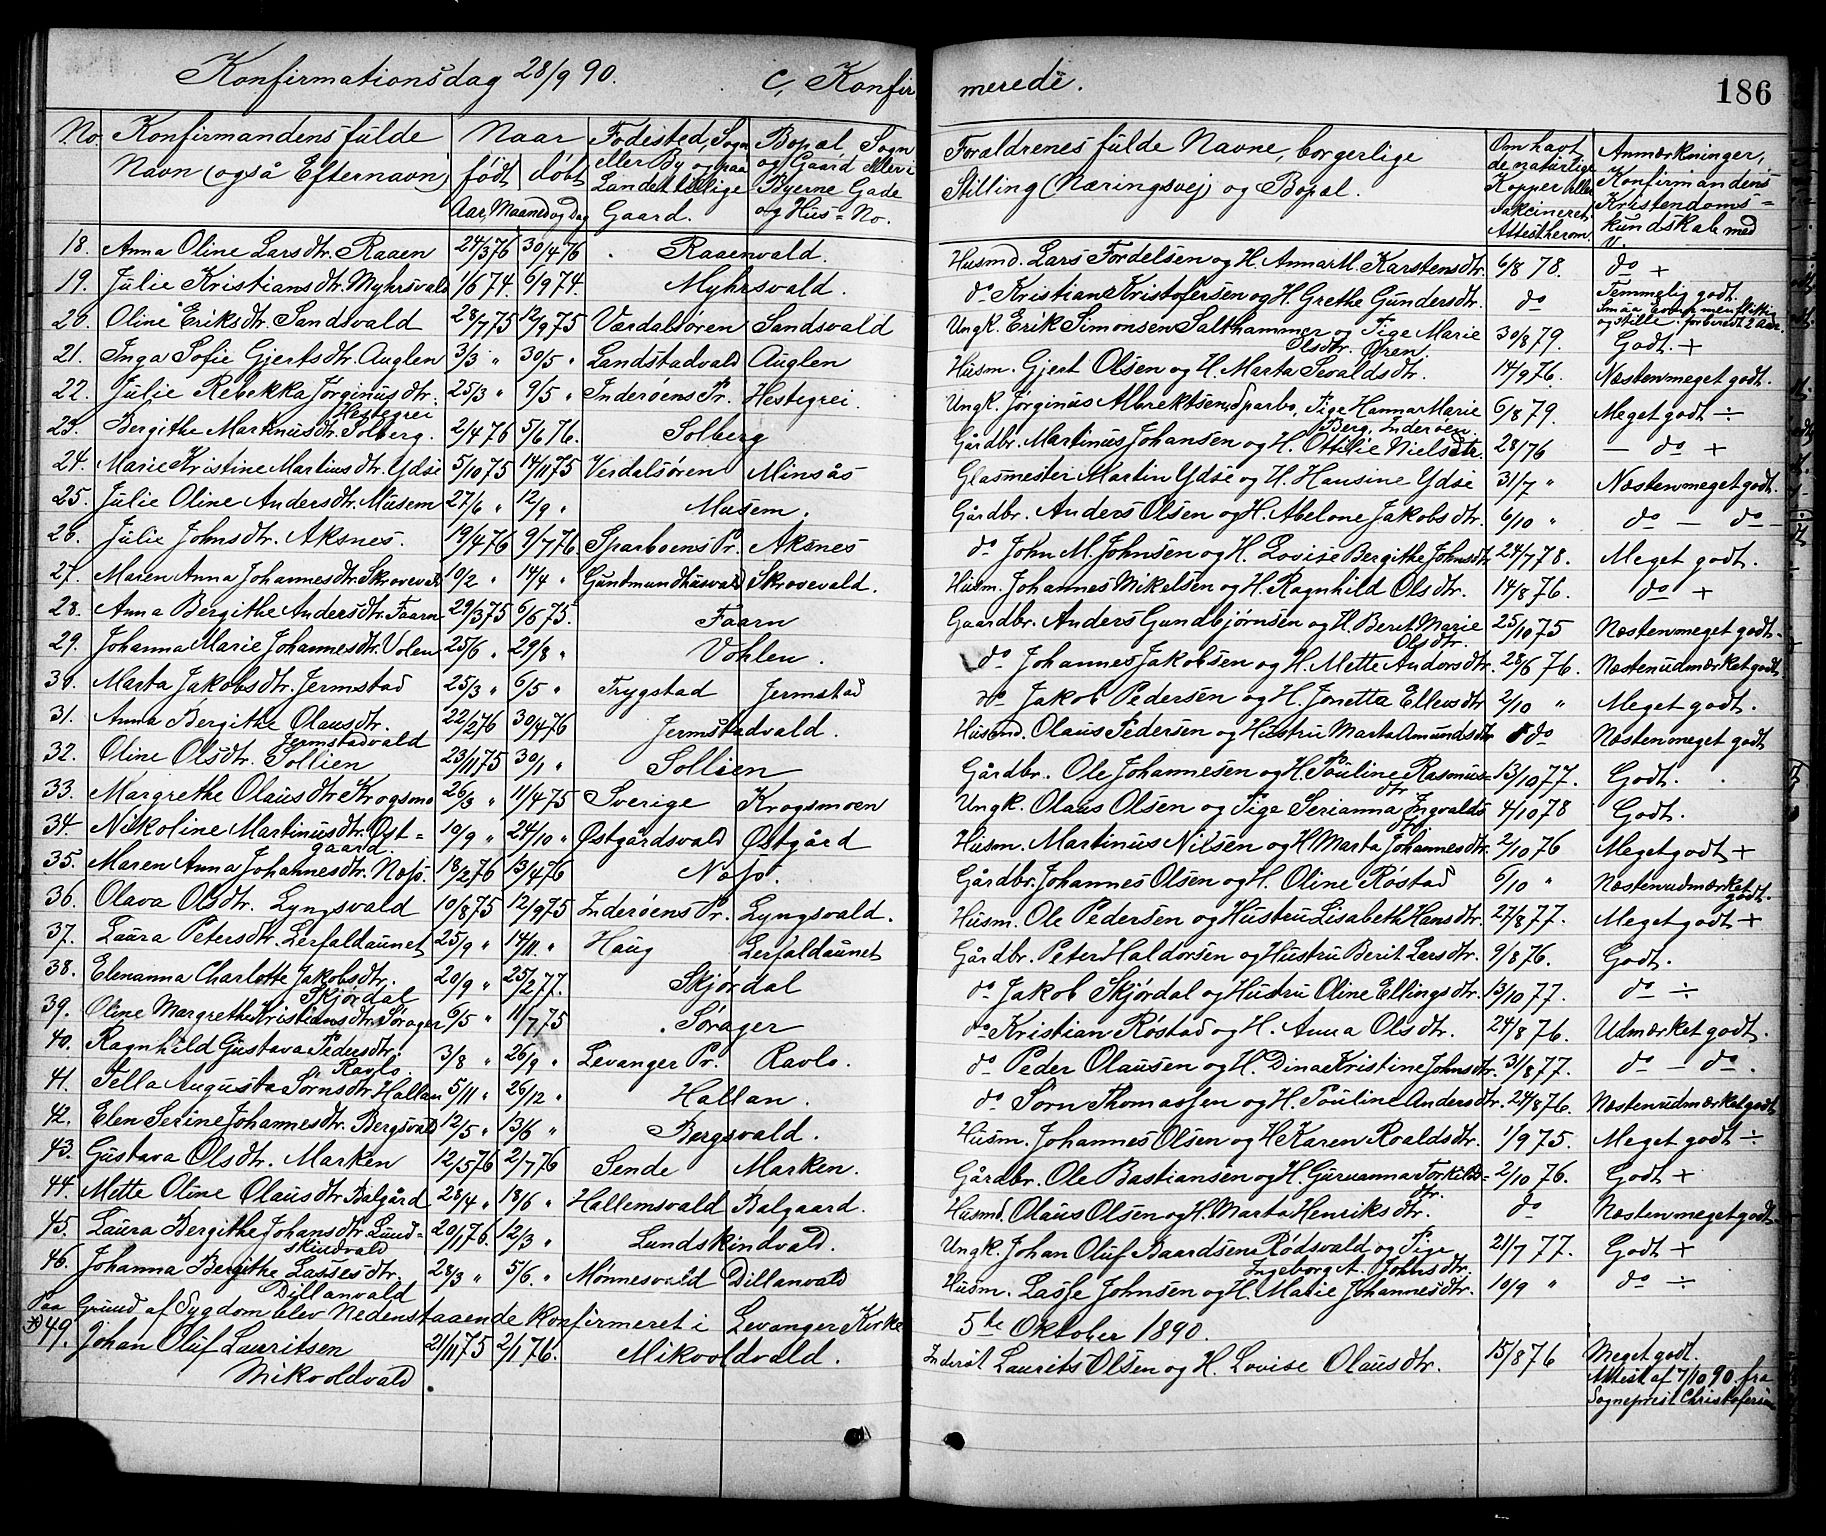 Konfirmationsdag 28/9 90. C, Konfirmerede. 186
No. Konfirmandens fulde Navn (også Efternavn) Naar født døbt Aar, Maaned og Dag Fødested, Sogn eller By og paa Landet tillige Gaard. Bopæl Sogn og Gaard eller i Byerne Gade og Hus=No. Forældrenes fulde Navne, borgerlige Stilling (Næringsvej) og Bopæl. Om havt de naturlige Kopper eller vakcineret, Attest herom. Anmærkninger, Konfirmandens Kristendoms=kundskab med V.
18. Anna Oline Larsdtr. Raaen 24/3 76 30/4 76 Raaenvald. Husmd. Lars Fordelsen og H. Anna M. Karstensdtr. 6/8 78. do +
19. Julie Kristiansdtr. Myhrsvald 1/6 74. 6/9 74. Myhrsvald. do Kristian Kristofersen og H. Grethe Gundersdtr. do Temmelig godt. Smaa Evner men flittig og stille. forberedt 2 Aar.
20. Oline Eriksdtr. Sandsvald 28/7 75 12/9 75 Værdalsøren Sandsvald Ungk. Erik Simonsen Salthammer og Pige Marie Olsdtr. Ören. 30/8 79. Godt. +
21. Inga Sofie Gjertsdtr. Auglen 3/3 " 30/5 " Landstadvald Auglen Husm. Gjert Olsen og H. Marta Sevaldsdtr. 14/9 76. Næsten meget godt.
22. Julie Rebekka Jørginusdtr. Hestegrei 25/3 " 9/5 " Inderøens Pr. Hestegrei. Ungk. Jørginus Albrektsen, Sparbo, Pige Hanna Marie Berg, Inderøen. 6/8 79. Meget godt ÷
23. Bergithe Martinusdtr. Solberg. 2/4 76 5/6 76. Solberg Gårdbr. Martinus Johansen og H. Ottilie Nielsdtr. 28/76 — do +
24. Marie Kristine Martinsdtr. Ydse 5/10 75 14/11 75 Verdalsøren Minsås Glasmester Martin Ydse og H. Hansine Ydse 31/7 " Næsten meget godt.
25. Julie Oline Andersdtr. Musem 27/6 " 12/9 " Musem. Gårdbr. Anders Olsen og H. Abelone Jakobsdtr. 6/10 " do — do —
26. Julie Johnsdtr. Aksnes. 19/4 76 9/7 76 Sparboens Pr. Aksnes do John M. Johnsen og H. Lovise Bergithe Johnsdtr. 24/7 78. Meget godt.
27. Maren Anna Johannesdtr. Skrovevald 19/2 " 14/4 " Gudmundhusvald Skrosevald. Husm. Johannes Mikelsen og H. Ragnhild Olsdtr. 14/8 76. do +
28. Anna Bergithe Andersdtr. Faarn 29/3 75 6/6 75. Faarn Gaardbr. Anders Gundbjørnsen og H. Berit Marie Olsdtr. 25/10 75 Næsten meget godt.
29. Johanna Marie Johannesdtr. Volen 25/6 " 29/8 " Vohlen. do Johannes Jakobsen og H. Mette Andersdtr. 28/6 76. Næsten udmærket godt
30. Marta Jakobsdtr. Jermstad 25/3 " 6/5 " Trygstad Jermstad do Jakob Pedersen og H. Jonetta Ellevsdtr 2/10 " Meget godt.
31. Anna Bergithe Olausdtr. Jermstadvald 22/2 76 30/4 76 Jermstadvald. Husmd. Olaus Pedersen og Hustru Marta Amundsdtr do Næsten meget godt
32. Oline Olsdtr. Sollien 23/11 75 30/1 " Sollien Gårdbr. Ole Johannesen og H. Pouline Rasmusdtr. 13/10 77. Godt.
33. Margrethe Olausdtr. Krogsmo 26/3 " 11/4 75 Sverige Krogsmoen Ungk. Olaus Olsen og Pige Serianna Ingvaldsdtr. 4/10 78 Godt.
34. Nikoline Martinusdtr. Øst=gaard. 19/9 " 24/10 " Østgårdsvald Østgård Husm. Martinus Nilsen og H Marta Johannesdtr. 2/10 76 Meget godt +
35. Maren Anna Johannesdtr. Næss. 18/2 76 13/4 76 Næss. Gårdbr. Johannes Olsen og H. Oline Røstad 6/10 " Næsten udmærket godt.
36. Olava Olsdtr. Lyngsvald 10/8 75 12/9 75 Inderøens Pr. Lyngsvald. Husm. Ole Pedersen og Hustru Lisabeth Hansdtr. 27/8 77. Meget godt +
37. Laura Petersdtr. Lerfaldaunet 25/9 " 14/11 " Haug Lerfaldaunet Gårdbr. Peter Haldorsen og Hustru Berit Larsdtr. 9/8 76. Godt.
38. Elenanna Charlotte Jakobsdtr. Skjørdal 20/9 " 25/2 77. Skjørdal do Jakob Skjørdal og Hustru Oline Ellingsdtr. 13/10 77. do ÷
39. Oline Margrethe Kristiansdtr. Sørager 6/5 " 11/7 75 Sørager do Kristian Røstad og H. Anna Olsdtr. 24/8 76. Udmærket godt.
40. Ragnhild Gustava Pedersdtr. Ravlo. 3/8 " 26/9 " Levanger Pr. Ravlo. do Peder Olausen og H. Dina Kristine Johnsdtr. 31/8 77. do — do.
41. Tella Augusta Sørnsdtr. Hallan 5/11 " 26/12 " Hallan. do Sørn Thomassen og H. Pouline Andersdtr. 24/8 76. Næsten udmærket godt
42. Elen Serine Johannesdtr. Bergsvald 12/5 " 13/6 " Bergsvald. Husm. Johannes Olsen og H Karen Roaldsdtr. 1/9 75. Meget godt ÷
43. Gustava Olsdtr. Marken 12/5 76 2/7 76 Sende Marken. Gårdbr. Ole Bastiansen og H. Guruanna Torkildsdtr. 2/10 76. Godt +
44. Mette Oline Olausdtr. Balgård 28/4 " 18/6 " Hallemsvald Balgaard. Husmd. Olaus Olsen og H. Marta Henriksdtr. do Næsten meget godt
45. Laura Bergithe Johansdtr. Lund=skindvald 20/1 76. 12/3 " Lundskindvald. Ungk. Johan Oluf Baardsen Rødsvald og Pige Ingeborg A. Johnsdtr. 21/7 77. Godt +
46. Johanna Bergithe Lassesdtr. Dillanvald 28/3 " 5/6. " Mønnesvald Dillanvald Husm. Lasse Johnsen og H. Marie Johannesdtr. 10/9 " do ÷
Paa Grund af Sygdom blev Nedenstaaende konfirmeret i Levanger Kirke 5te Oktober 1890.
49. Johan Oluf Lauritsen Mikvoldvald 21/11 75 2/1 76. Mikvoldvald. Inderst Laurits Olsen og H. Lovise Olausdtr. 15/8 76 Meget godt. Attest af 7/10 90 fra Sogneprest Christofersen